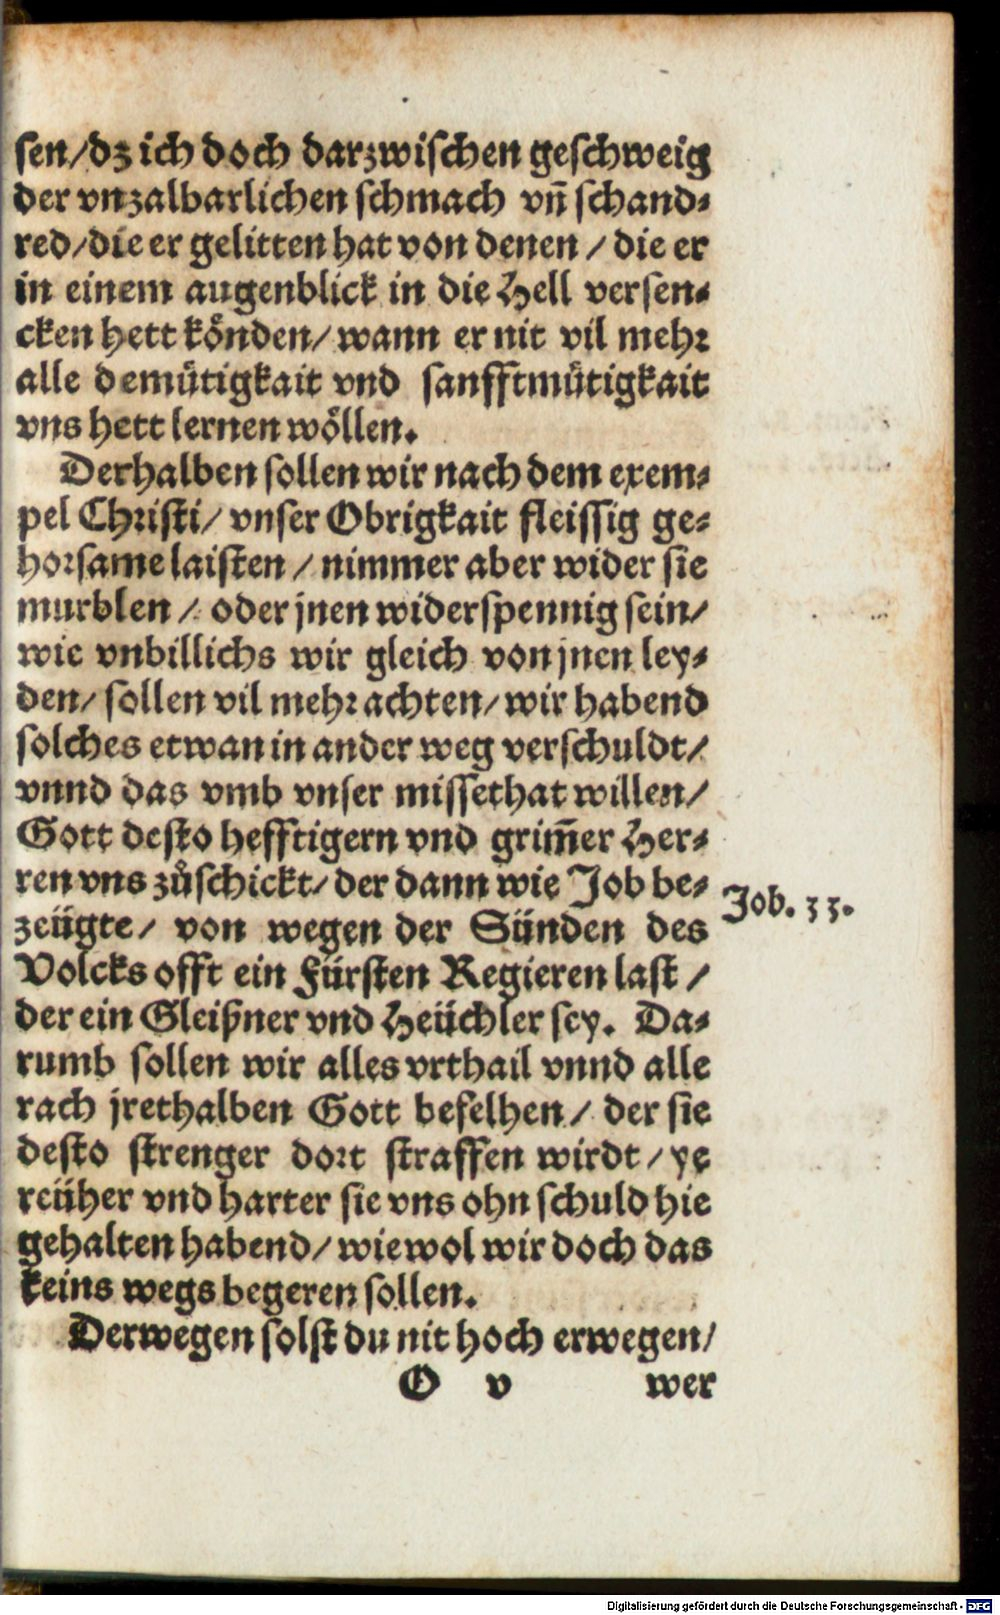 sen/dz ich doch darzwischen geschweig
der vnzalbarlichen schmach vñ schand⸗
red/die er gelitten hat von denen / die er
in einem augenblick in die Hell versen⸗
cken hett könden/ wann er nit vil mehr
alle demütigkait vnd sanfftmütigkait
vns hett lernen wöllen.
Derhalben sollen wir nach dem exem⸗
pel Christi/ vnser Obrigkait fleissig ge⸗
horsame laisten / nimmer aber wider sie
murblen / oder jnen widerspennig sein/
wie vnbillichs wir gleich von jnen ley⸗
den/ sollen vil mehr achten/ wir habend
solches etwan in ander weg verschuldt/
vnnd das vmb vnser missethat willen/
Gott desto hefftigern vnd grim̃er Her⸗
ren vns zůschickt/ der dann wie Job be⸗
Job. 33.
zeügte/ von wegen der Sünden des
Volcks offt ein Fürsten Regieren last /
der ein Gleißner vnd Heüchler sey. Da⸗
rumb sollen wir alles vrthail vnnd alle
rach jrethalben Gott befelhen/ der sie
desto strenger dort straffen wirdt / ye
reüher vnd harter sie vns ohn schuld hie
gehalten habend/ wiewol wir doch das
keins wegs begeren sollen.
Derwegen solst du nit hoch erwegen/
O v wer
Digitalisierung gefördert durch die Deutsche Forschungsgemeinschaft - DFG